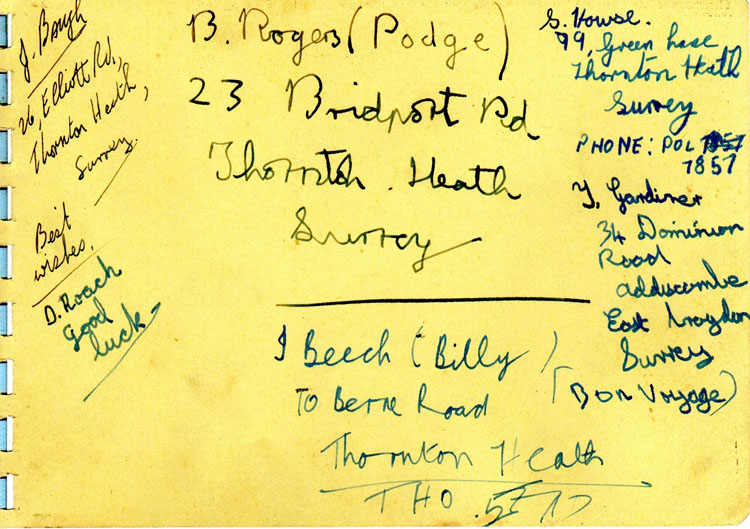 J. Baugh
26, Elliott Rd.,
Thornton Heath,
Surrey.
Best
wishes.
D. Roach
Good
luck.
B. Rogers (Podge)
23 Bridport Rd
Thornton. Heath
Surrey
I Beech (Billy)
To Berne Road
Thornton Heath
THO. 57
S. Howse.
99, Green Lane
Thornton Heath
Surrey
PHONE: POL
7857
J. Gardiner
34 Dominion
Road
Addiscombe
East Croydon
Surrey
(Bon Voyage)